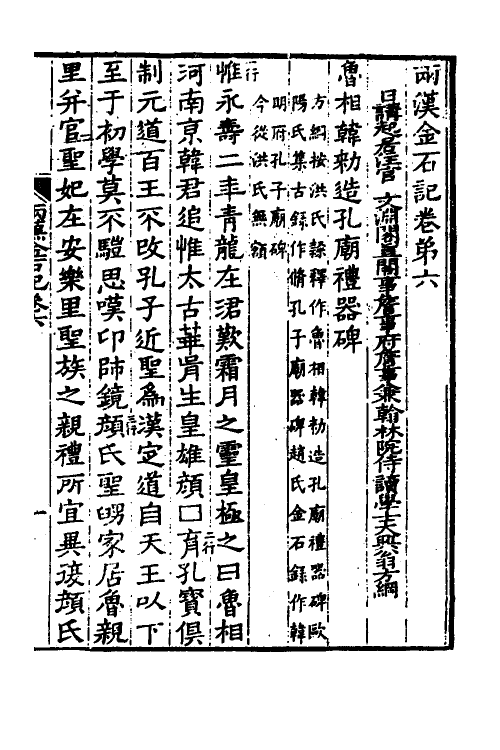 兩漢金石記卷第六
日講起居注官 文淵閣直閣事詹事府詹事兼翰林院侍讀學士大興翁方綱
魯相韓勑造孔廟禮器碑
方綱按洪氏隸釋作魯相韓勑造孔廟禮器碑歐
陽氏集古錄作脩孔子廟器碑趙氏金石錄作韓
明府孔子廟碑
今從洪氏無額
惟永壽二年青龍在涒歎霜月之靈皇極之日魯相
一行
河南京韓君追惟太古華胥生皇雄顏囗育孔寶俱
二行
制元道百王不改孔子近聖為漢定道自天王以下
至于初學莫不驩思嘆卬師鏡顏氏聖舅家居魯親
三行
里幷官聖妃在安樂里聖族之親禮所宜異復顏氏
兩漢金石記卷六
一